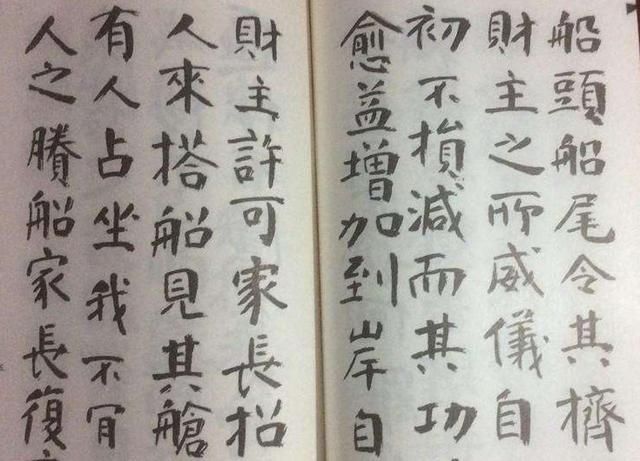 船頭船尾令其擠
財主之所威儀自
初不損減而其功
愈益增加到岸自
財主許可家長招
人來搭船見其艙
有人占坐我不肎
人之賸船家長復